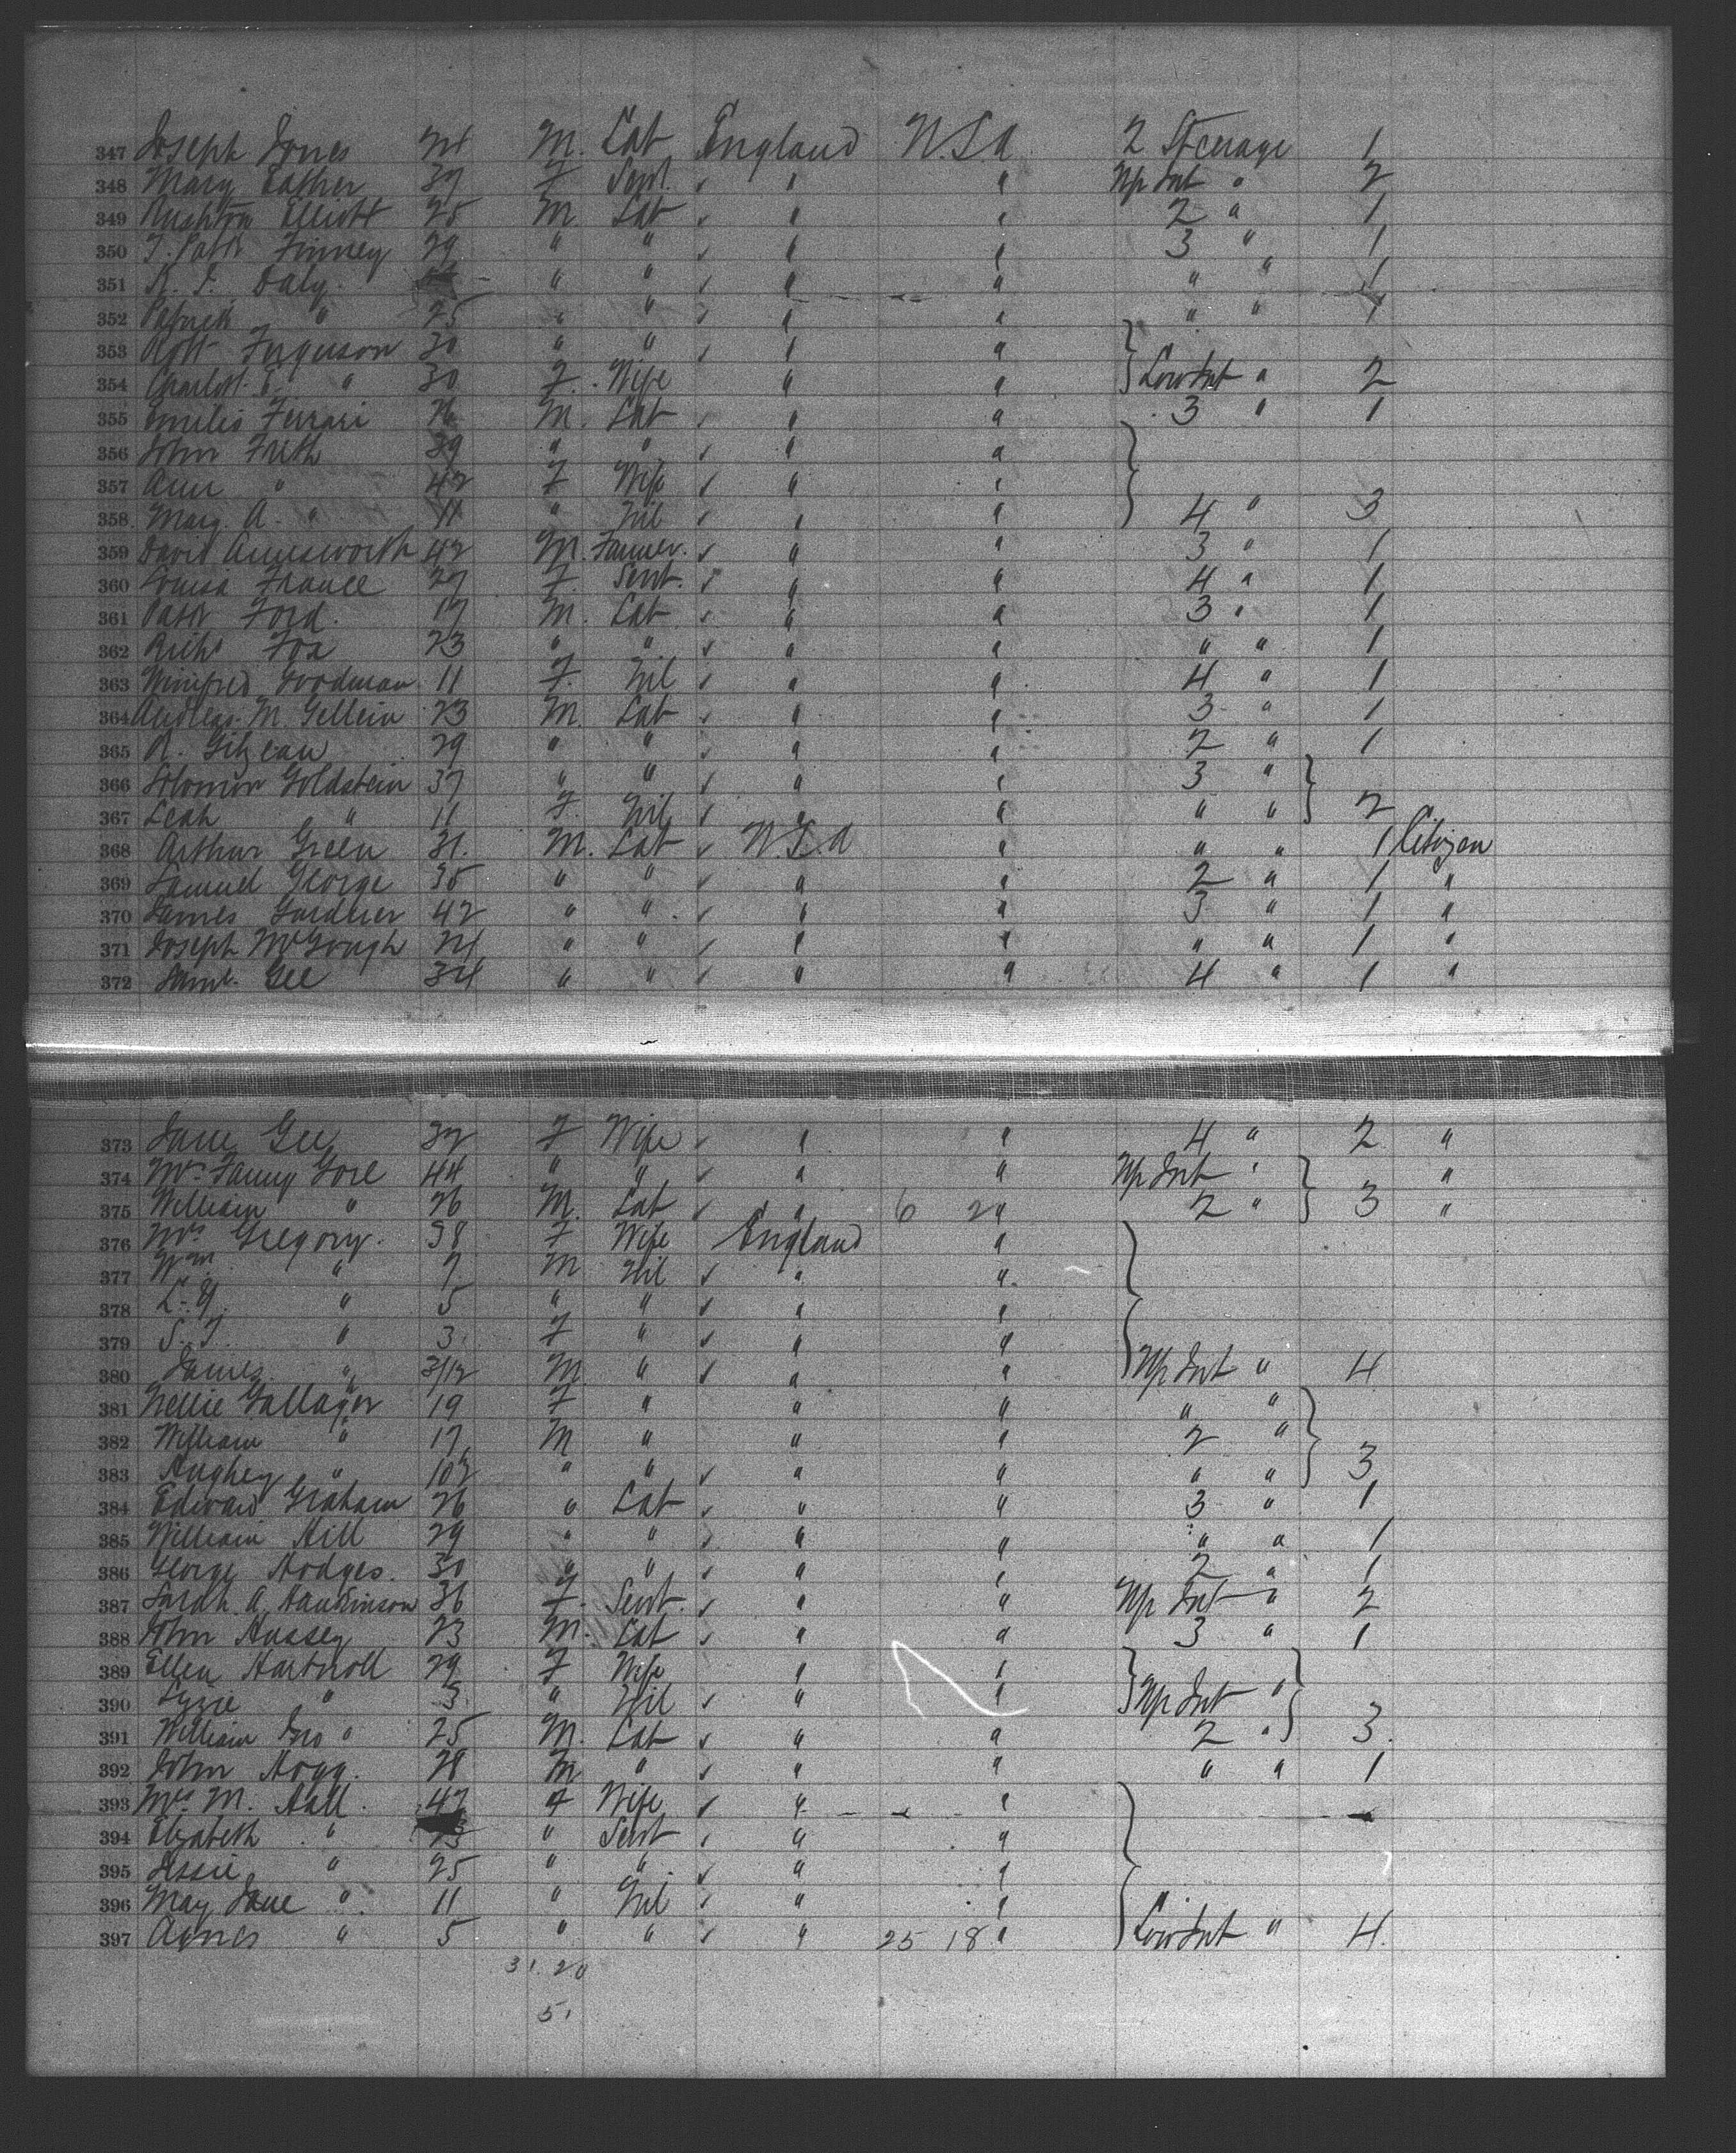 347 Joseph Jones 24 M. Lab England U.S.A 2 Steerage 1
348 Mary Father 37 F Servt. ✓ " " Up Int " 2
349 Rushton Elliott 25 M. Lab ✓ " " 2 " 1
350 T. Patk Finney 29 " " ✓ " " 3 " 1
351 Daly " " ✓ " " " " 1
352 Patrick " 25 " " ✓ " " " " 1
353 Robt Ferguson 30 " " ✓ " "
354 Charlott E. " 30 F. Wife " " Low Int " 2
355 Emilio Ferrari 26 M. Lab ✓ " " 3 " 1
356 John Frith 39 " " ✓ " "
357 Ann " 42 F Wife ✓ " "
358 Mary A. " 11 " Nil ✓ " " 4 " 3
359 David Ainesworth 42 M. Farmer. ✓ " " 3 " 1
360 Louisa France 27 F. Servt. ✓ " " 4 " 1
361 Patk Ford. 17 M. Lab ✓ " " 3 " 1
362 Richd Fox 23 " " ✓ " " " " 1
363 Winifred Goodman 11 F. Nil ✓ " " 4 " 1
364 Andreas M. Gellein 23 M. Lab ✓ " " 3 " 1
365 R. Gilzean 29 " " ✓ " " 2 " 1
366 Solomon Goldstein 37 " " ✓ " " 3 "
367 Leah " 11 F. Nil ✓ " " " " 2
368 Arthur Green 31. M. Lab ✓ U.S.A " " " 1 Citizen
369 Samuel George 35 " " ✓ " " 2 " 1 "
370 James Gardner 42 " " ✓ " " 3 " 1 "
371 Joseph McGough 24 " " ✓ " " " " 1 "
372 Saml. Gee 34 " " ✓ " " 4 " 1 "
373 Jane Gee 32 F Wife ✓ " " 4 " 2 "
374 Mrs Fanny Gore 44 " " ✓ " " Up Int " "
375 William " 26 M. Lab ✓ " 6 2 " 2 " 3 "
376 Mrs Gregory. 38 F Wife England "
377 Wm " 7 M Nil ✓ " "
378 " 5 " " ✓ " "
379 " 3 F " ✓ " "
380 James " 3/12 M. " ✓ " " Up Int " 4
381 Nellie Gallager 19 F " " " " "
382 William " 17 M " " " 2 "
383 Hughey " 10 " " ✓ " " " " 3
384 Edward Graham 26 " Lab ✓ " " 3 " 1
385 William Hill 29 " " ✓ " " " " 1
386 George Hodges. 30 " " ✓ " " 2 " 1
387 Sarah A. Hankinson 36 F. Servt. ✓ " " Up Int " 2
388 John Hussey 23 M. Lab ✓ " " 3 " 1
389 Ellen Hartnoll 29 F Wife " "
390 Lizzie " 3 " Nil ✓ " " Up Int "
391 William Jno " 25 M. Lab ✓ " " 2 " 3.
392 John Hogg. 28 M " ✓ " " " " 1
393 Mrs M. Hall. 47 F Wife ✓ " "
394 Elizabeth " " Servt ✓ " "
395 Jessie " 25 " " ✓ " "
396 May Jane " 11 " Nil ✓ " "
397 Agnes " 5 " " ✓ " 25 18 " Low Int " 4.
31. 20
51